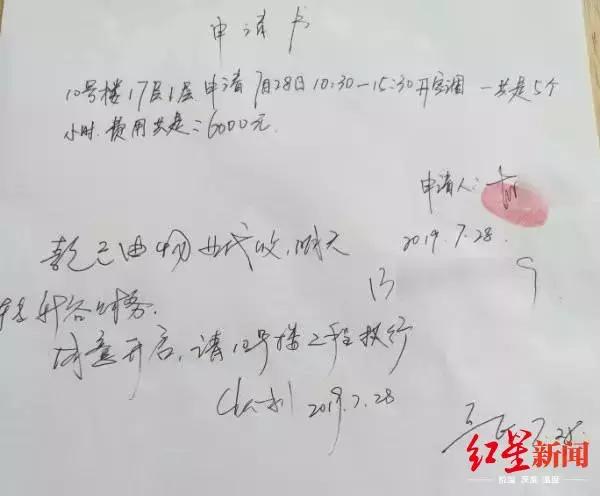 申请书
10号楼17层1层申请7月28日10:30-15:30开空调 一共是5个
小时.费用共是:6000元.
申请人:
2019.7.28.
款已由物业代收,明天
转给财务.
同意开启,请10号楼工程执行
2019.7.28
7.28.
红星新闻